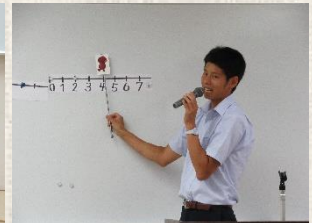 0 1 2 3 4 5 6 7